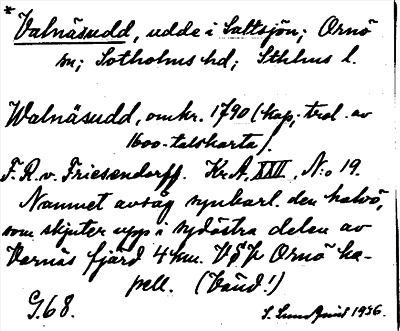 * Valnäsudd, udde i Saltsjön; Ornö
sn; Sotholms hd; Sthlms l.
Walnäsudd, omkr. 1790 (kap; trol. av
1600-talskarta).
F. R. v. Friesendorff. Kr.A. XXII, N:o 19.
Namnet avsåg synbarl. den halvö,
som skjuter upp i sydöstra delen av
Varnäs fjärd 4 km. VSV Ornö ka-
pell. (Vänd!)
G. 68. S. Lundquist 1936.